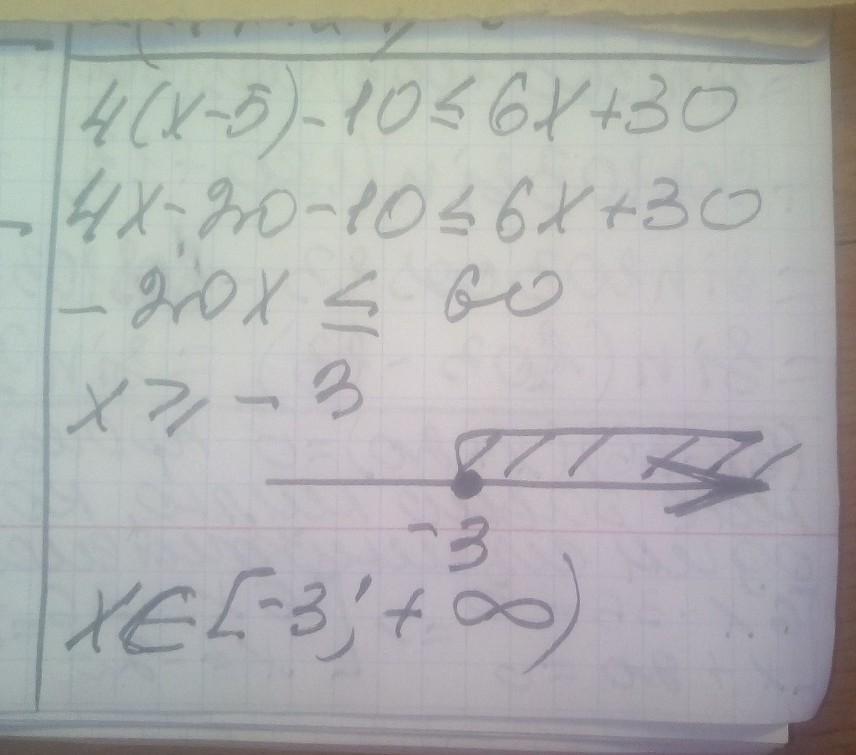 4(x-5)-10≤6x+30
4x-20-10≤6x+30
-20x ≤ 60
x ⩾ -3
-3
x∈[-3; +∞)